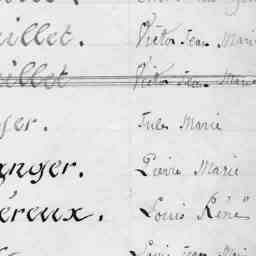 illet. Victor Jean Marie
illet Victor Jean Marie
er. Jules Marie
anger. Pierre Marie
éreux. Louis René
Louis Jean Mari